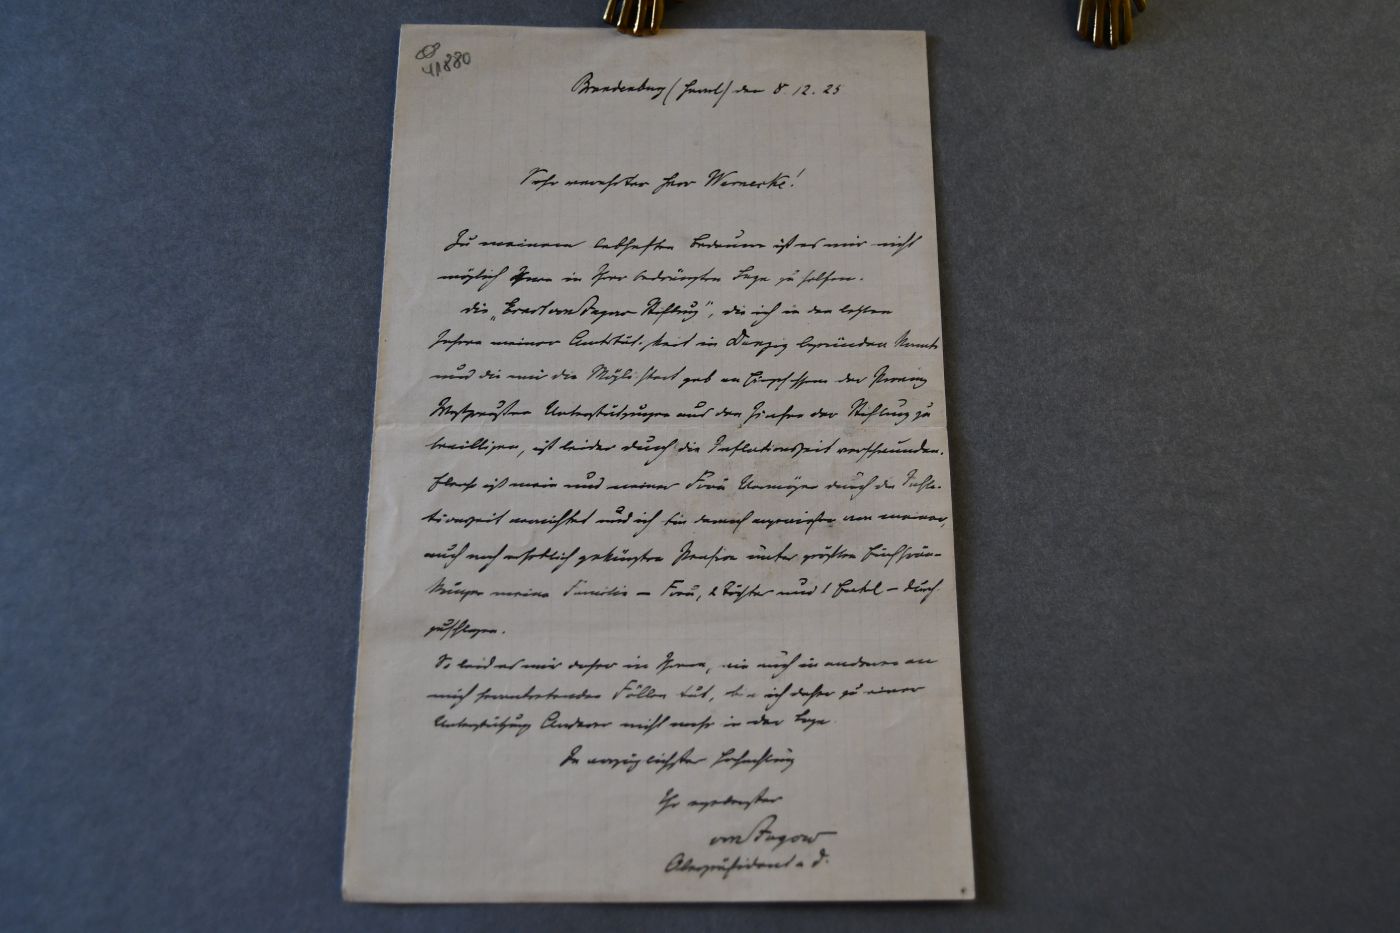 41880
Brandenburg (Havel) den 8.12.25
Sehr verehrter Herr Wernecke!
Zu meinem lebhaften Bedauern ist es mir nicht
möglich Ihnen in Ihrer bedrängten Lage zu helfen.
Die „Ernst von Jagow Stiftung", die ich in den letzten
Jahren meiner Amtstätigkeit in Danzig begründen konnte
und die mir die Möglichkeit gab an Eingesessene der Provinz
Westpreußen Unterstützungen aus den Zinsen der Stiftung zu
bewilligen, ist leider durch die Inflationszeit verschwunden.
Ebenso ist mein und meiner Frau Vermögen durch die Infla-
tionszeit vernichtet und ich bin danach angewiesen von meiner,
auch noch erheblich gekürzten Pension unter größten Einschrän-
kungen meine Familie – Frau, 2 Töchter und 1 Enkel – durch
zuschlagen.
So leid es mir daher in Ihrem, wie auch in anderen an
mich herantretenden Fällen tut, bin ich daher zu einer
Unterstützung Anderer nicht mehr in der Lage.
In vorzüglichster Hochachtung
Ihr ergebenster
von Jagow
Oberpräsident a. D.